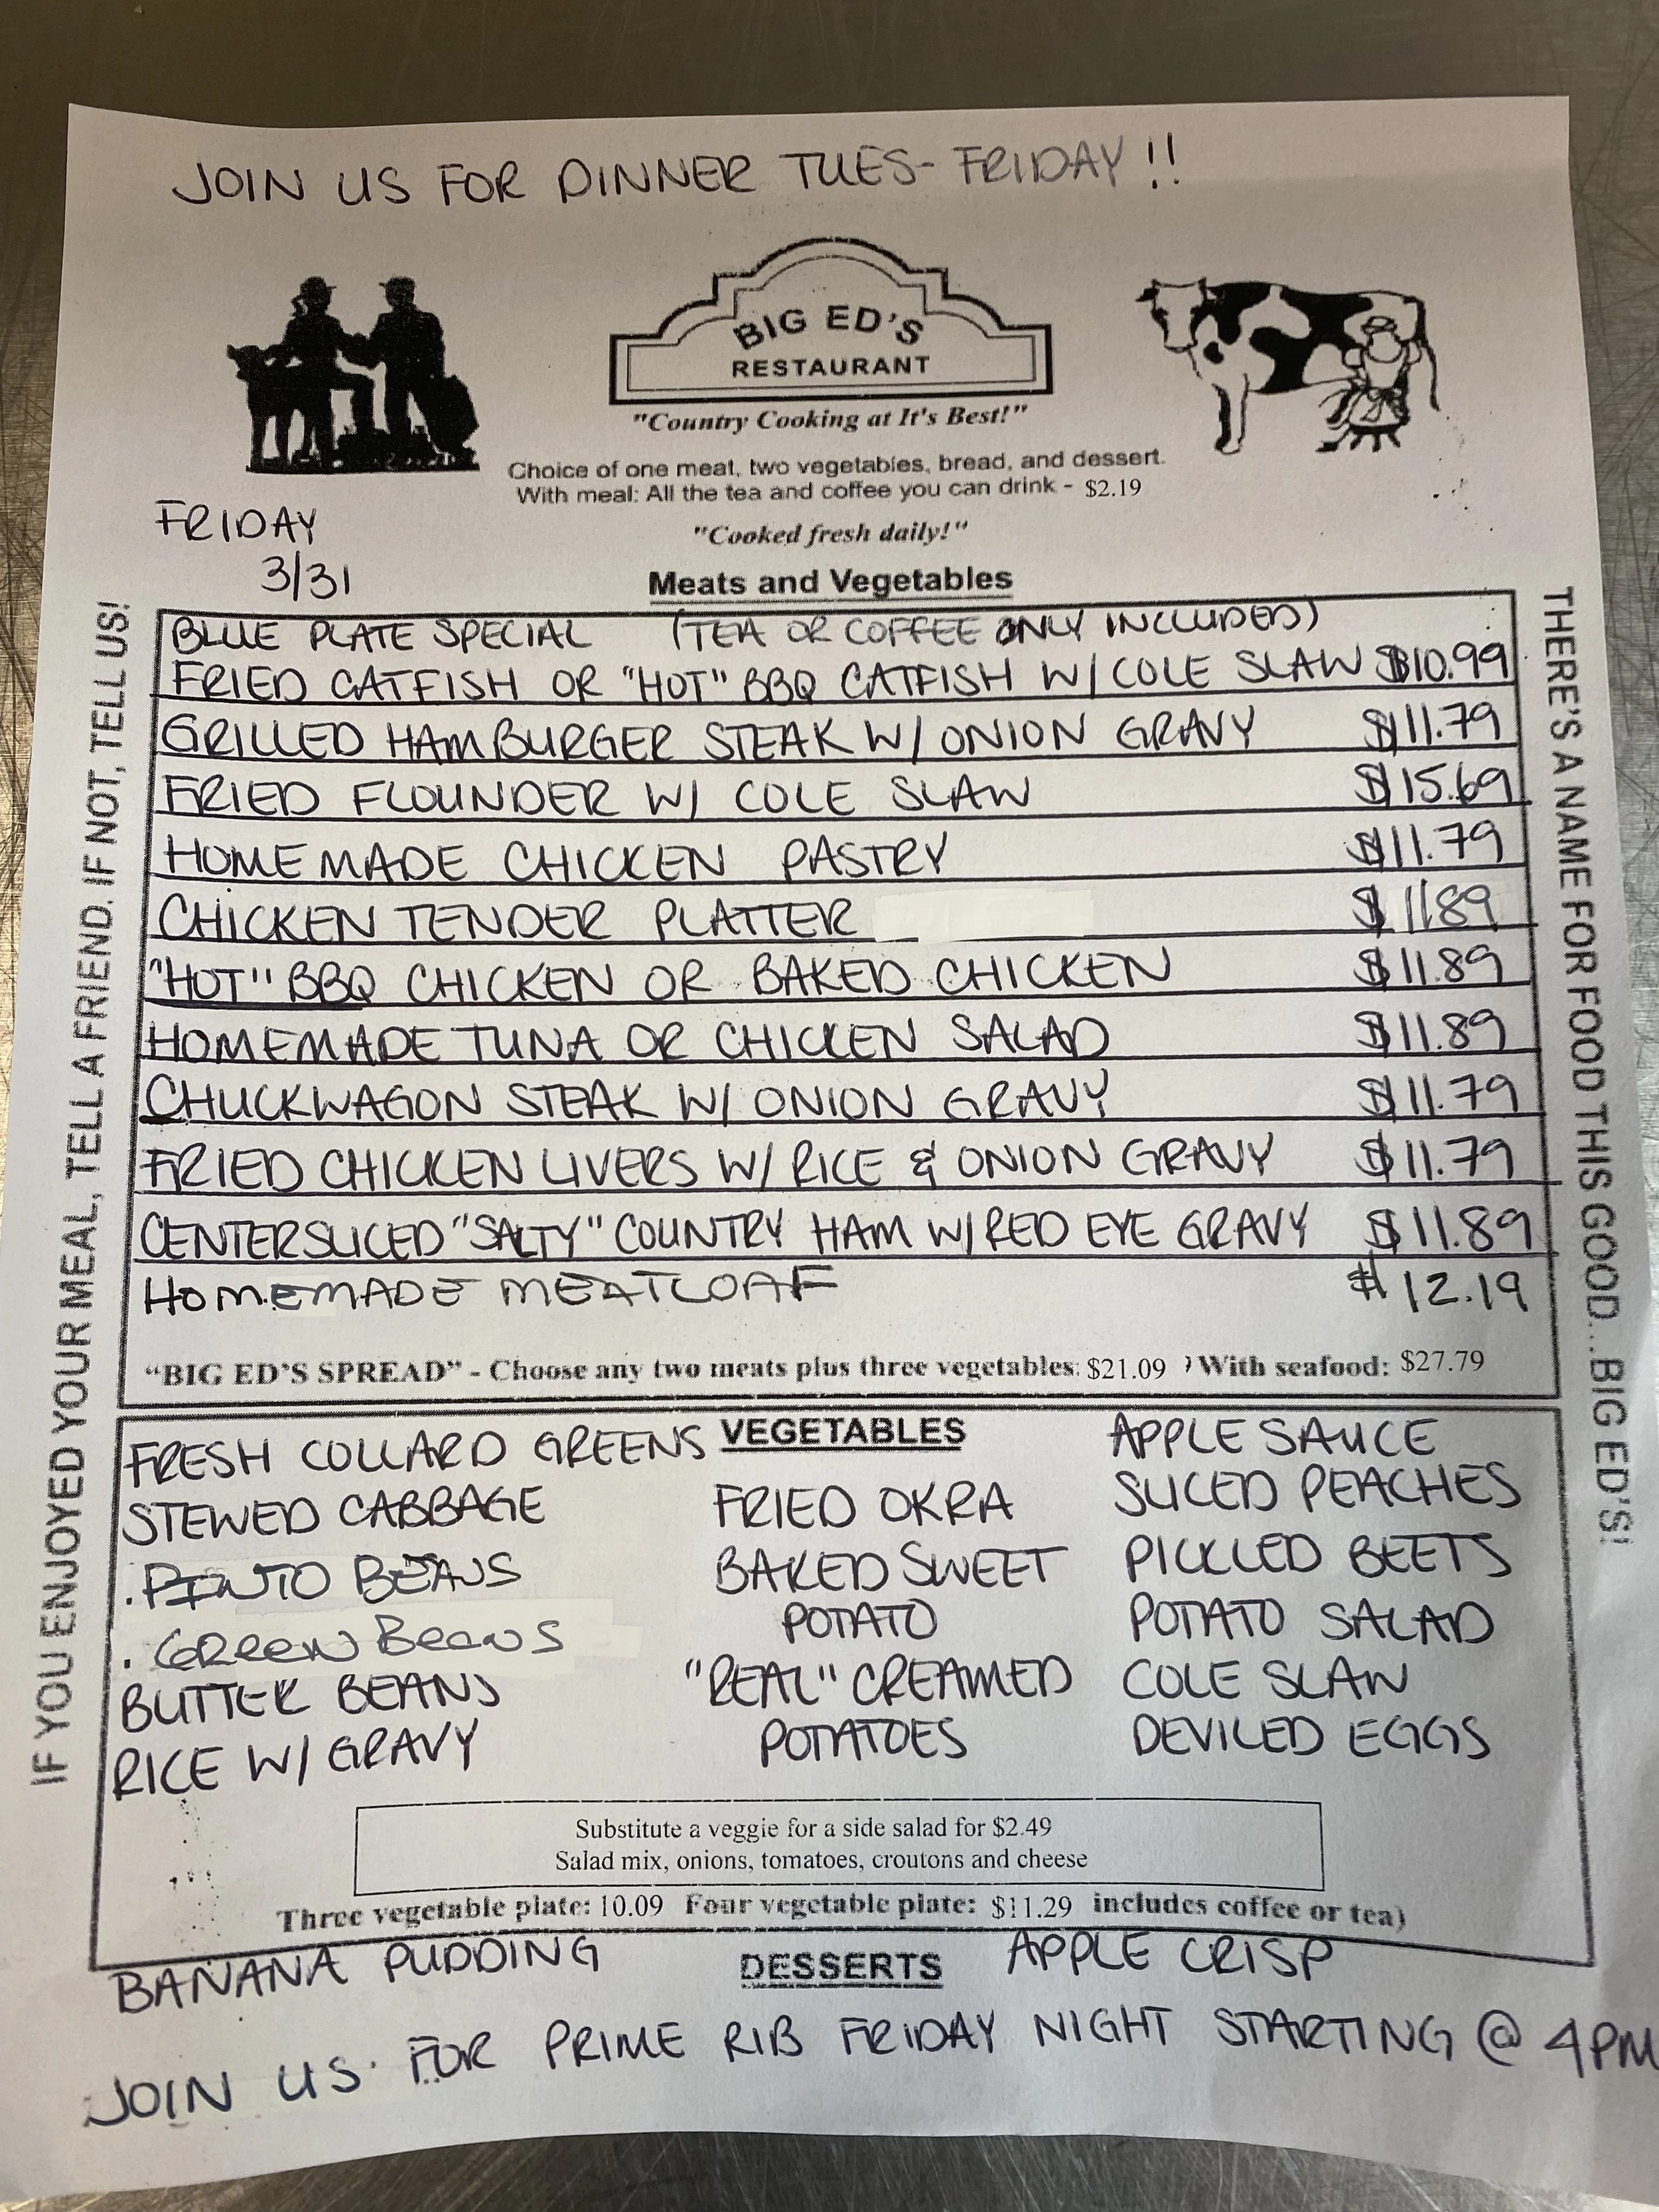 JOIN US FOR DINNER TUES- FRIDAY!!
BIG ED'S
RESTAURANT
"Country Cooking at It's Best!"
Choice of one meat, two vegetables, bread, and dessert.
With meal: All the tea and coffee you can drink - $2.19
"Cooked fresh daily!"
FRIDAY
3/31
Meats and Vegetables
BLUE PLATE SPECIAL (TEA OR COFFEE ONLY INCLUDED)
FRIED CATFISH OR "HOT" BBQ CATFISH W/ COLE SLAW $10.99
GRILLED HAMBURGER STEAK W/ ONION GRAVY $11.79
FRIED FLOUNDER W/ COLE SLAW $15.69
HOMEMADE CHICKEN PASTRY $11.79
CHICKEN TENDER PLATTER $1189
"HOT" BBQ CHICKEN OR BAKED CHICKEN $11.89
HOMEMADE TUNA OR CHICKEN SALAD $11.89
CHUCKWAGON STEAK W/ ONION GRAVY $11.79
FRIED CHICKEN LIVERS W/ RICE & ONION GRAVY $11.79
CENTERSLICED "SALTY" COUNTRY HAM W/RED EYE GRAVY $11.89
HOMEMADE MEATLOAF $12.19
"BIG ED'S SPREAD" - Choose any two meats plus three vegetables: $21.09 ) With seafood: $27.79
IF YOU ENJOYED YOUR MEAL, TELL A FRIEND. IF NOT, TELL US!
THERE'S A NAME FOR FOOD THIS GOOD...BIG ED'S!
VEGETABLES
FRESH COLLARD GREENS
STEWED CABBAGE
. PINTO BEANS
. GREEN BEANS
BUTTER BEANS
RICE W/ GRAVY
FRIED OKRA
BAKED SWEET
POTATO
"REAL" CREAMED
POTATOES
APPLE SAUCE
SLICED PEACHES
PICKLED BEETS
POTATO SALAD
COLE SLAW
DEVILED EGGS
Substitute a veggie for a side salad for $2.49
Salad mix, onions, tomatoes, croutons and cheese
Three vegetable plate: 10.09 Four vegetable plate: $11.29 includes coffee or tea)
DESSERTS
BANANA PUDDING
APPLE CRISP
JOIN US FOR PRIME RIB FRIDAY NIGHT STARTING @ 4PM